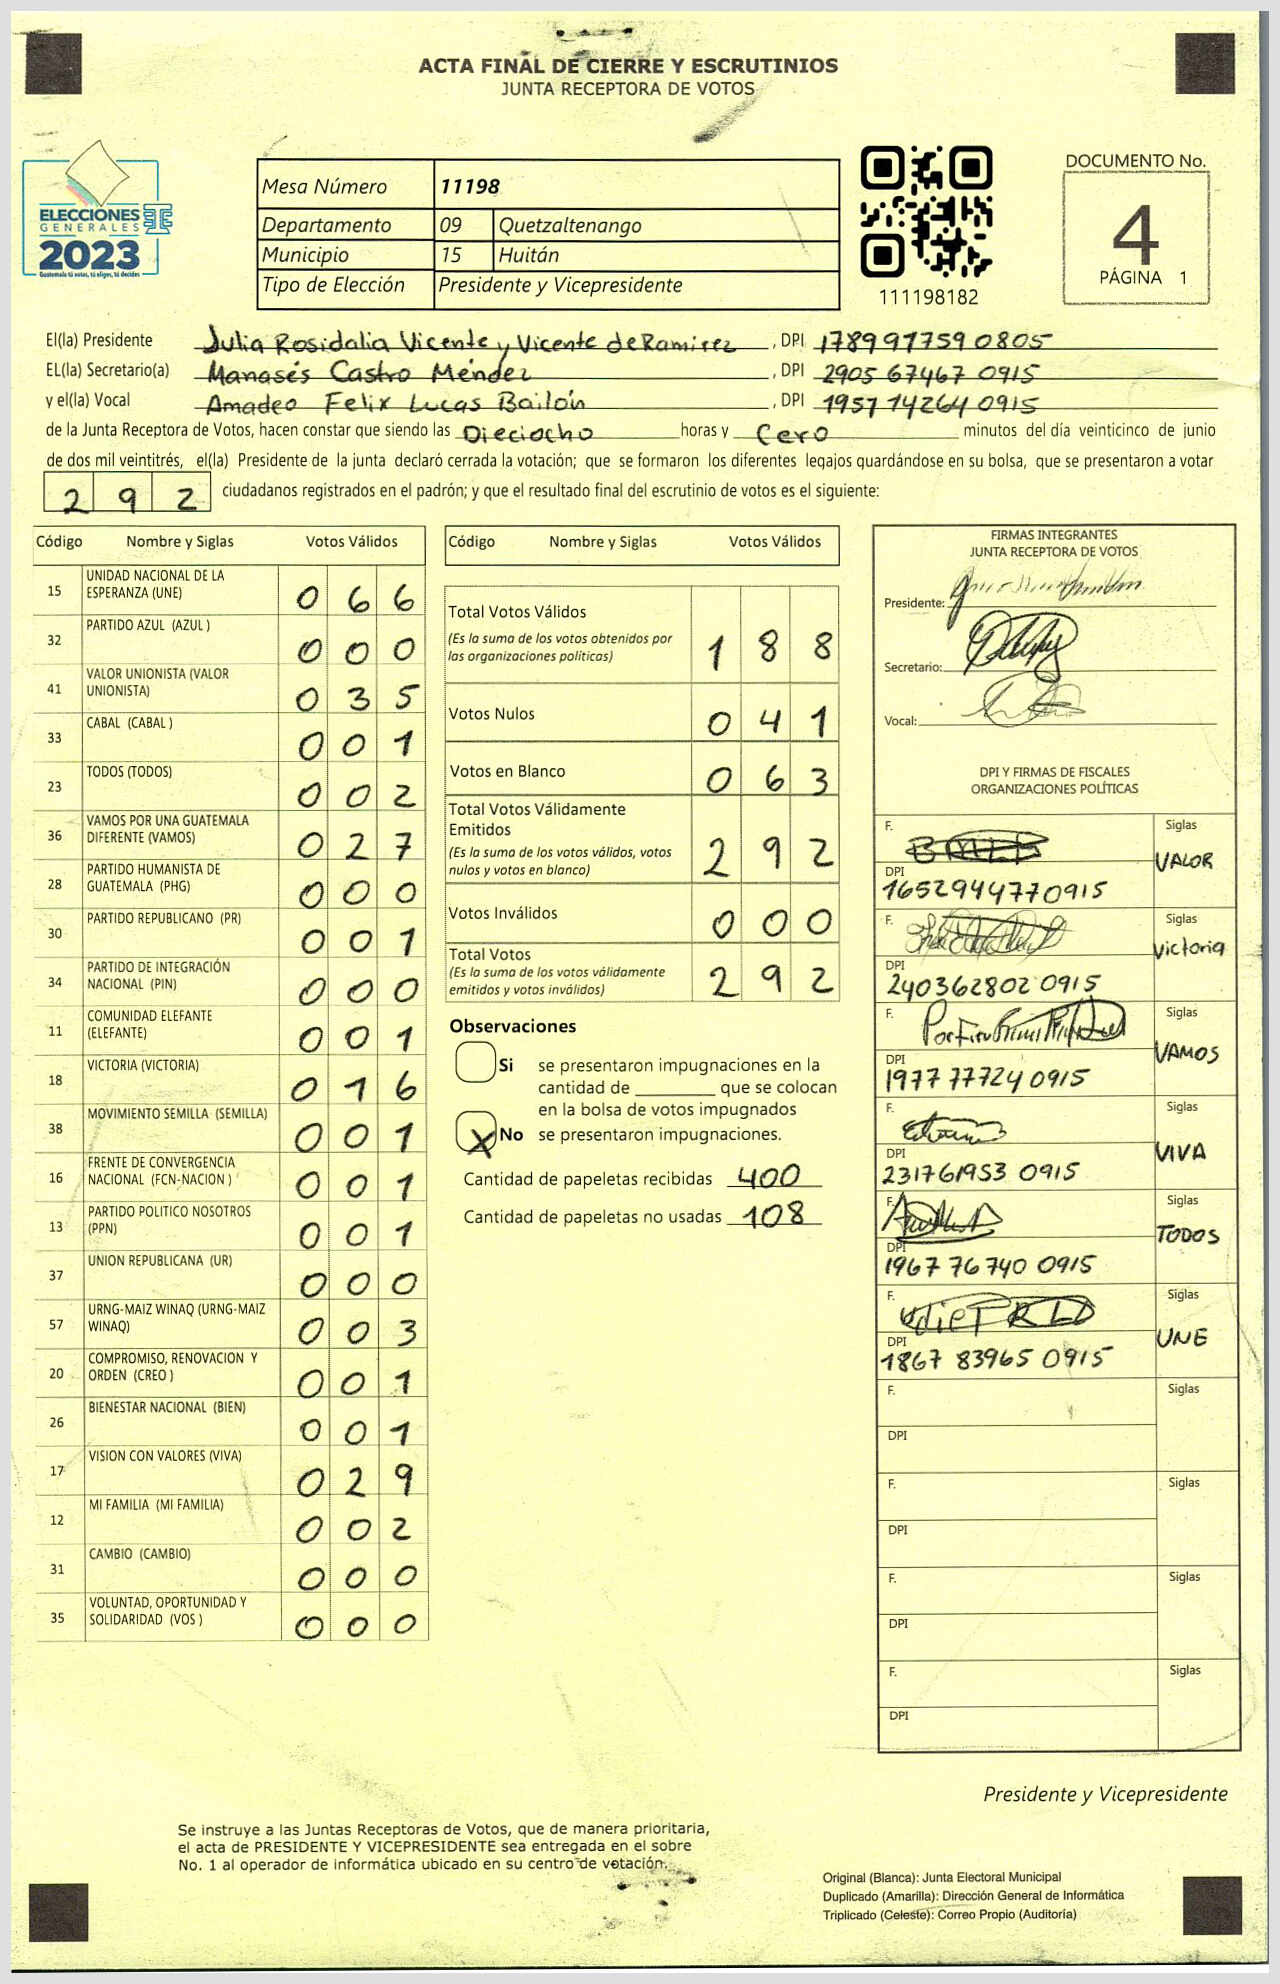 ACTA FINAL DE CIERRE Y ESCRUTINIOS
JUNTA RECEPTORA DE VOTOS
ELECCIONES
GENERALES
2023
Guatemala tú votas, tú eliges, tú decides
Mesa Número 11198
Departamento 09 Quetzaltenango
Municipio 15 Huitán
Tipo de Elección Presidente y Vicepresidente
111198182
DOCUMENTO No.
4
PÁGINA 1
El(la) Presidente Julia Rosidalia Vicente y Vicente de Ramirez, DPI 178997759 0805
EL(la) Secretario(a) Manasés Castro Méndez, DPI 2905 67467 0915
y el(la) Vocal Amadeo Felix Lucas Bailón, DPI 1957 14264 0915
de la Junta Receptora de Votos, hacen constar que siendo las Dieciocho horas y Cero minutos del día veinticinco de junio
de dos mil veintitrés, el(la) Presidente de la junta declaró cerrada la votación; que se formaron los diferentes legajos guardándose en su bolsa, que se presentaron a votar
292 ciudadanos registrados en el padrón; y que el resultado final del escrutinio de votos es el siguiente:
Código Nombre y Siglas Votos Válidos
15 UNIDAD NACIONAL DE LA
ESPERANZA (UNE) 066
32 PARTIDO AZUL (AZUL ) 000
41 VALOR UNIONISTA (VALOR
UNIONISTA) 035
33 CABAL (CABAL ) 001
23 TODOS (TODOS) 002
36 VAMOS POR UNA GUATEMALA
DIFERENTE (VAMOS) 027
28 PARTIDO HUMANISTA DE
GUATEMALA (PHG) 000
30 PARTIDO REPUBLICANO (PR) 001
34 PARTIDO DE INTEGRACIÓN
NACIONAL (PIN) 000
11 COMUNIDAD ELEFANTE
(ELEFANTE) 001
18 VICTORIA (VICTORIA) 016
38 MOVIMIENTO SEMILLA (SEMILLA) 001
16 FRENTE DE CONVERGENCIA
NACIONAL (FCN-NACION ) 001
13 PARTIDO POLITICO NOSOTROS
(PPN) 001
37 UNION REPUBLICANA (UR) 000
57 URNG-MAIZ WINAQ (URNG-MAIZ
WINAQ) 003
20 COMPROMISO, RENOVACION Y
ORDEN (CREO ) 001
26 BIENESTAR NACIONAL (BIEN) 001
17 VISION CON VALORES (VIVA) 029
12 MI FAMILIA (MI FAMILIA) 002
31 CAMBIO (CAMBIO) 000
35 VOLUNTAD, OPORTUNIDAD Y
SOLIDARIDAD (VOS ) 000
Código Nombre y Siglas Votos Válidos
Total Votos Válidos
(Es la suma de los votos obtenidos por
las organizaciones políticas) 188
Votos Nulos 041
Votos en Blanco 063
Total Votos Válidamente
Emitidos
(Es la suma de los votos válidos, votos
nulos y votos en blanco) 292
Votos Inválidos 000
Total Votos
(Es la suma de los votos válidamente
emitidos y votos inválidos) 292
Observaciones
Si se presentaron impugnaciones en la
cantidad de ________ que se colocan
en la bolsa de votos impugnados
X No se presentaron impugnaciones.
Cantidad de papeletas recibidas 400
Cantidad de papeletas no usadas 108
FIRMAS INTEGRANTES
JUNTA RECEPTORA DE VOTOS
Presidente:
Secretario:
Vocal:
DPI Y FIRMAS DE FISCALES
ORGANIZACIONES POLÍTICAS
F. Siglas
VALOR
DPI
1652944770915
F. Siglas
Victoria
DPI
240362802 0915
F. Siglas
VAMOS
DPI
1977 77724 0915
F. Siglas
VIVA
DPI
231761953 0915
F. Siglas
TODOS
DPI
1967 76740 0915
F. Siglas
UNE
DPI
1867 83965 0915
F. Siglas
DPI
F. Siglas
DPI
F. Siglas
DPI
F. Siglas
DPI
Presidente y Vicepresidente
Se instruye a las Juntas Receptoras de Votos, que de manera prioritaria,
el acta de PRESIDENTE Y VICEPRESIDENTE sea entregada en el sobre
No. 1 al operador de informática ubicado en su centro de votación.
Original (Blanca): Junta Electoral Municipal
Duplicado (Amarilla): Dirección General de Informática
Triplicado (Celeste): Correo Propio (Auditoría)